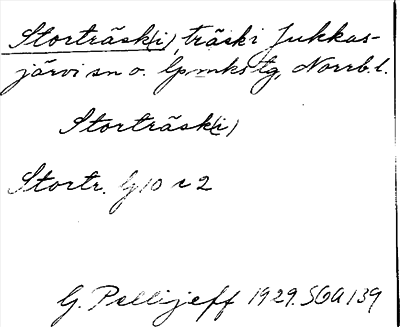 Storträsk(i), träsk i Jukkas-
järvi sn o. lpmkstg, Norrb. l.
Storträsk(i)
Stortr. G10 r 2
G. Pellijeff 1929. SOA 139